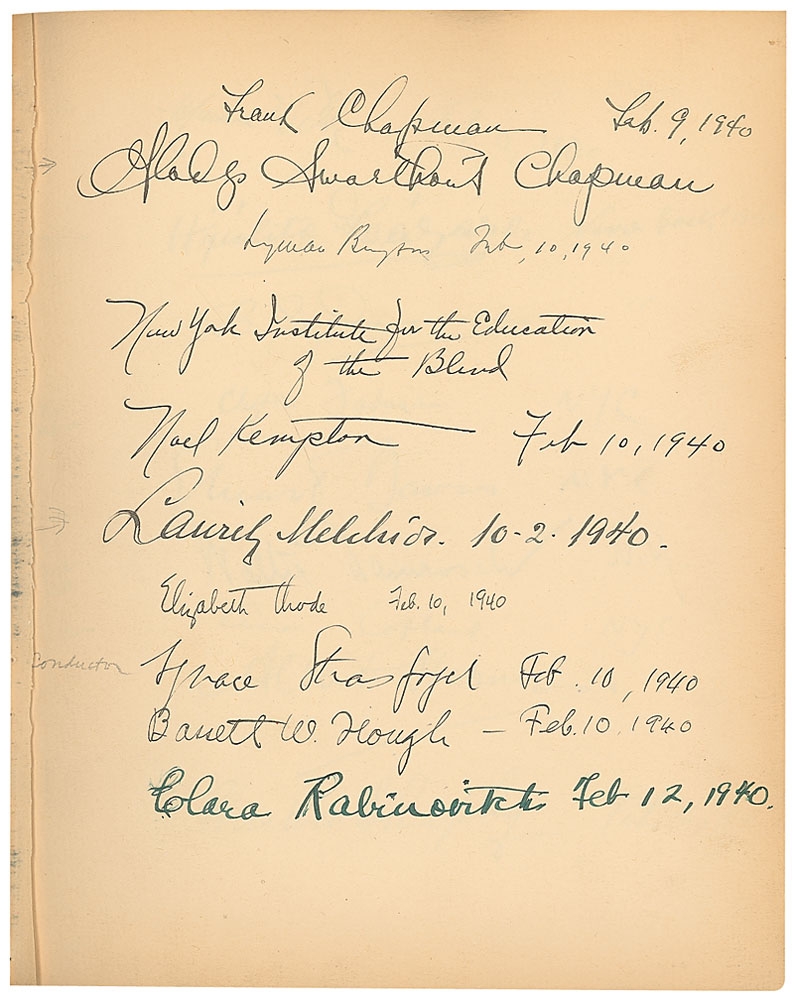 Frank Chapman Feb. 9, 1940
Gladys Swarthout Chapman
Lyman Bryson Feb, 10, 1940
New York Institute for the Education
of the Blind
Noel Kempton Feb 10, 1940
Lauritz Melchior. 10-2-1940.
Elizabeth Thode Feb. 10, 1940
conductor Ignace Strasfogel Feb. 10, 1940
Barrett W. Hough — Feb. 10, 1940
Clara Rabinovitch Feb 12, 1940.